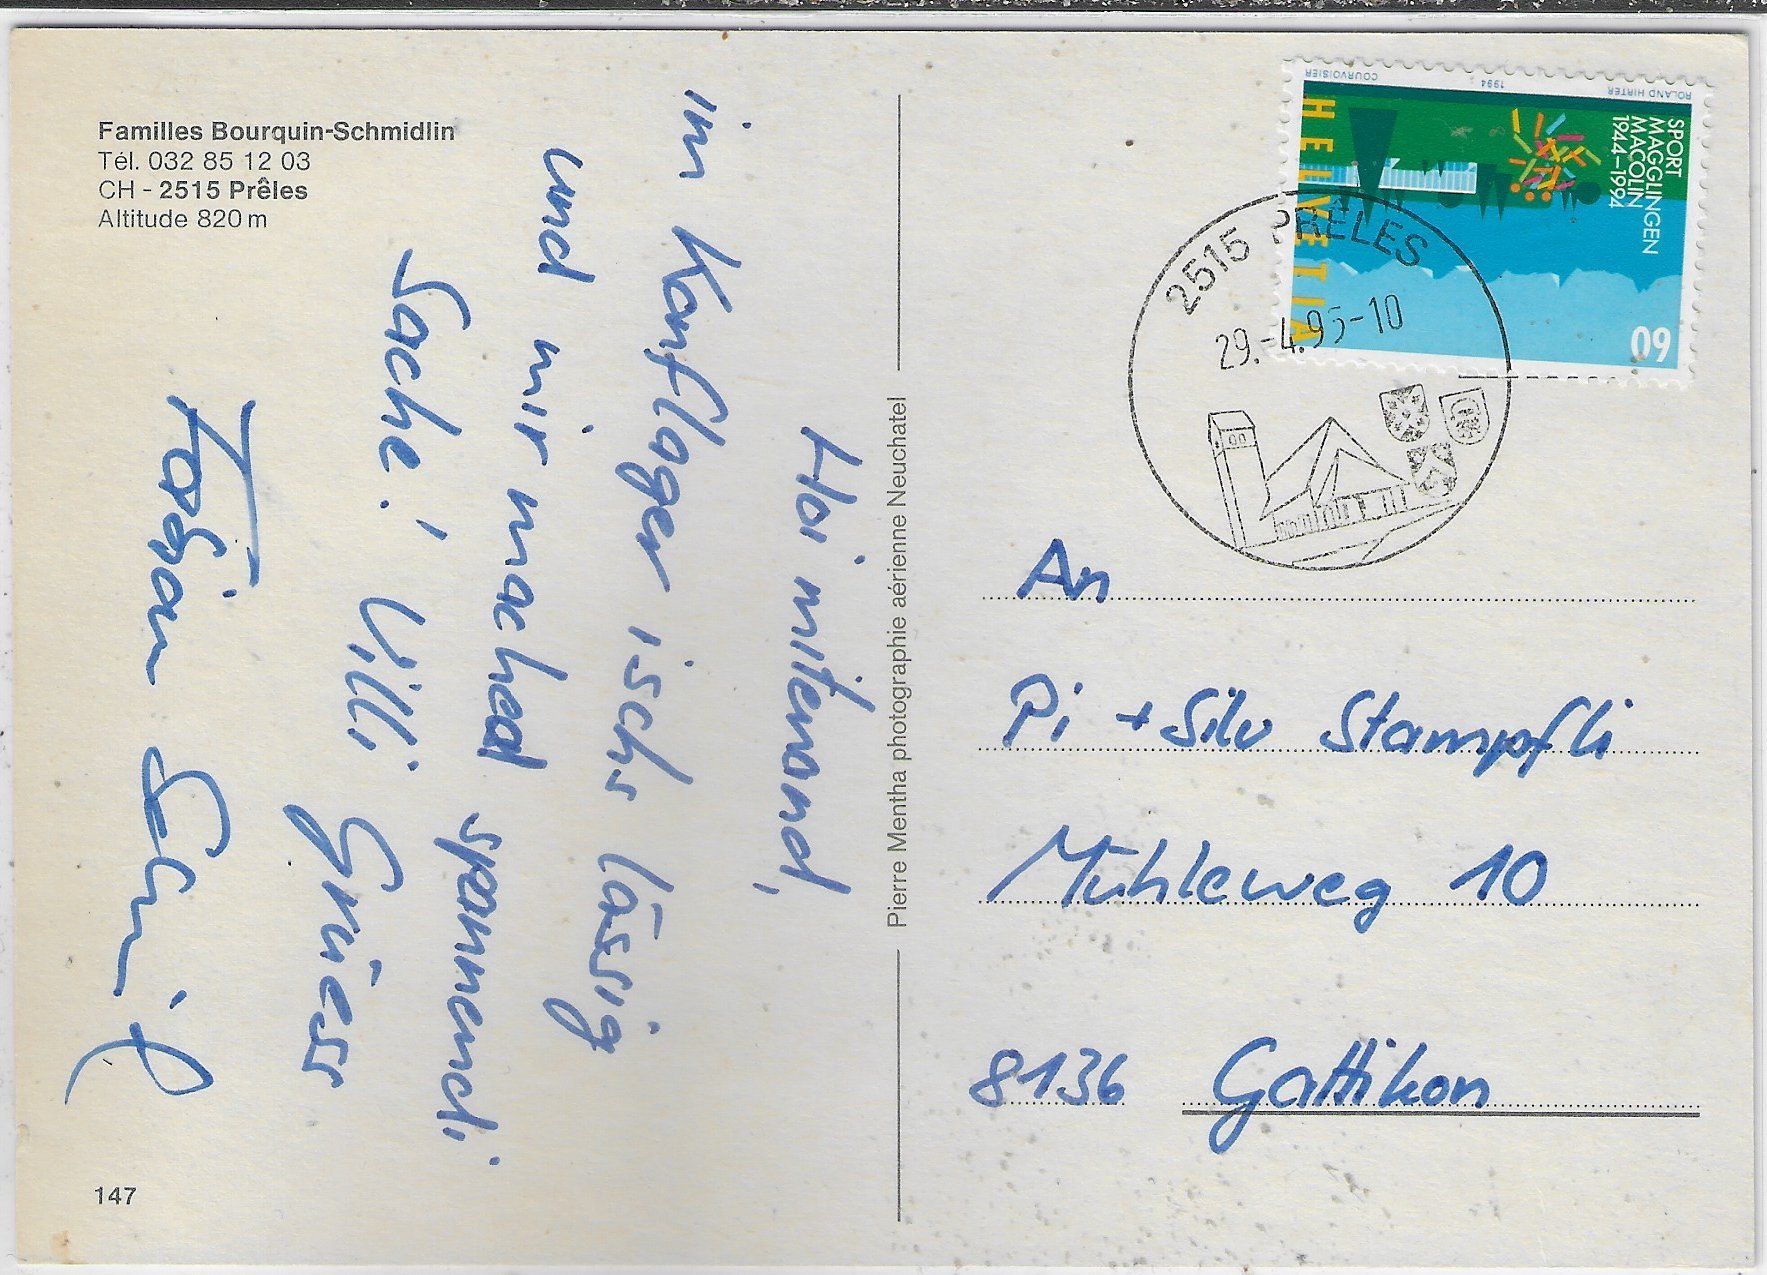 Familles Bourquin-Schmidlin
Tél. 032 85 12 03
CH - 2515 Prêles
Altitude 820 m
Hoi mitenand,
im Konflager ischs lässig
und mir mached spannendi
Sache! Villi Grüess
Fabian
147
Pierre Mentha photographie aérienne Neuchatel
ROLAND HIRTER 1994 COURVOISIER
SPORT
MAGGLINGEN
MACOLIN
1944–1994
HELVETIA
60
2515 PRÊLES
29.-4.95-10
An
Pi + Silv Stampfli
Mühleweg 10
8136 Gattikon